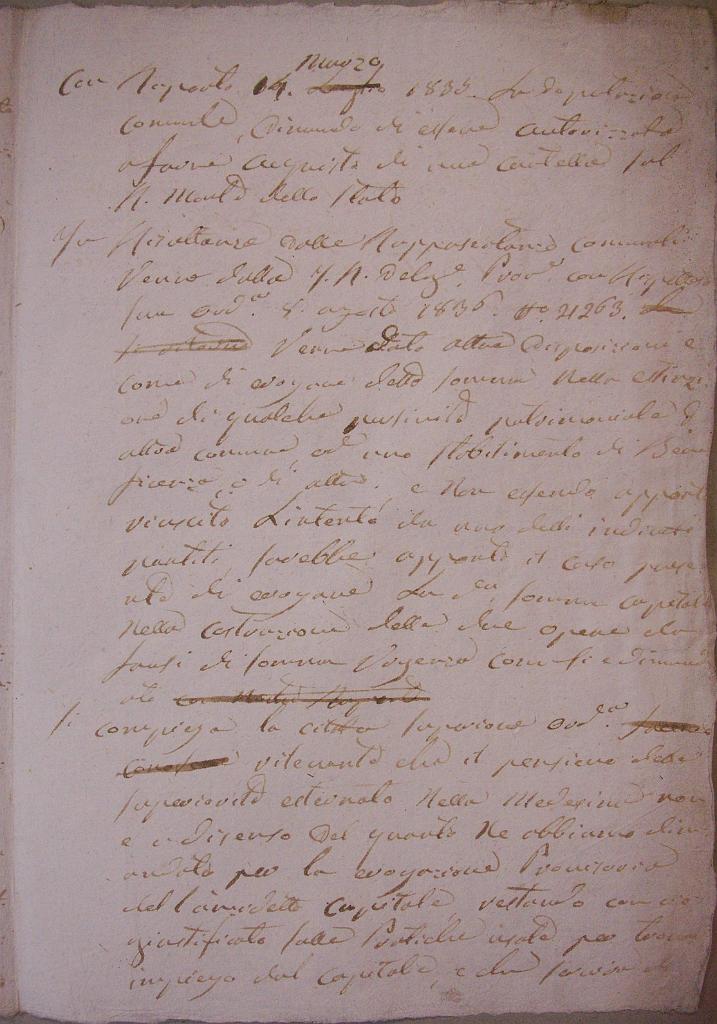 Marzo
Con Rapporto 14. Luglio 1835. La deputazione
comunale, Dimanda di essere autorizzata
a farne acquisto di una cartella sul
R. Monte dello Stato
In Risultanza dalle Rapposentanze comunali
Venne dalla I. R. Deleg.e Prov.e con
sua ord.a 8. agosto 1836. No. 21263.
Venne dato altre Disposizioni e
come di erogare detta somma nella estinzi
one di qualche passività patrimoniale di
altro comune, od uno Stabilimento di Bene
ficenza, o di altri, e non essendo apport
riuscito L'intento da uno delli indicati
partiti, sarebbe apponto il caso prese
nte di erogare La da. somma capitale
Nella costruzione delle due opere da
farsi di somma Urgenza come si è dimand
ato con
Si compiega la citata superiore ord.a
ritenuto che il pensiero della
superiorità esternato Nella Medesima non
e a disenso Del quanto Ne abbiamo dim
andato per la erogazione Provisoria
del Capitale, restando con ciò
giustificato Sulle Pratiche usate per trovare
impiego dal Capitale, e da servire di